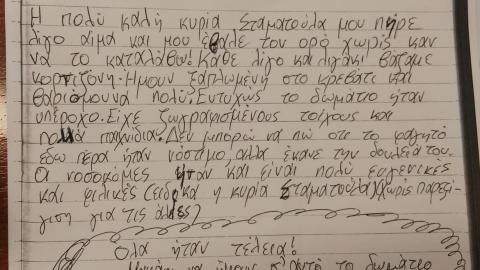 Η πολύ καλή κυρία Σταματούλα μου πήρε
λίγο αίμα και μου έβαλε τον ορό χωρίς καν
να το καταλάβω! Κάθε λίγο και λιγάκι βάζαμε
κορτιζόνη. Ήμουν ξαπλωμένη στο κρεβάτι και
βαριόμουνα πολύ. Ευτυχώς το δωμάτιο ήταν
υπέροχο. Είχε ζωγραφισμένους τοίχους και
πολλά παιχνίδια. Δεν μπορώ να πω οτι το φαγητό
εδω πέρα ήταν νόστιμο, αλλα έκανε την δουλειά του.
Οι νοσοκόμες ήταν και είναι πολύ ευγενικές
και φιλικές (ειδικα η κυρία Σταματούλα) (χωρίς παρεξή-
γιση για τις άλλες)
Όλα ήταν τέλεια!
το δωμάτιο